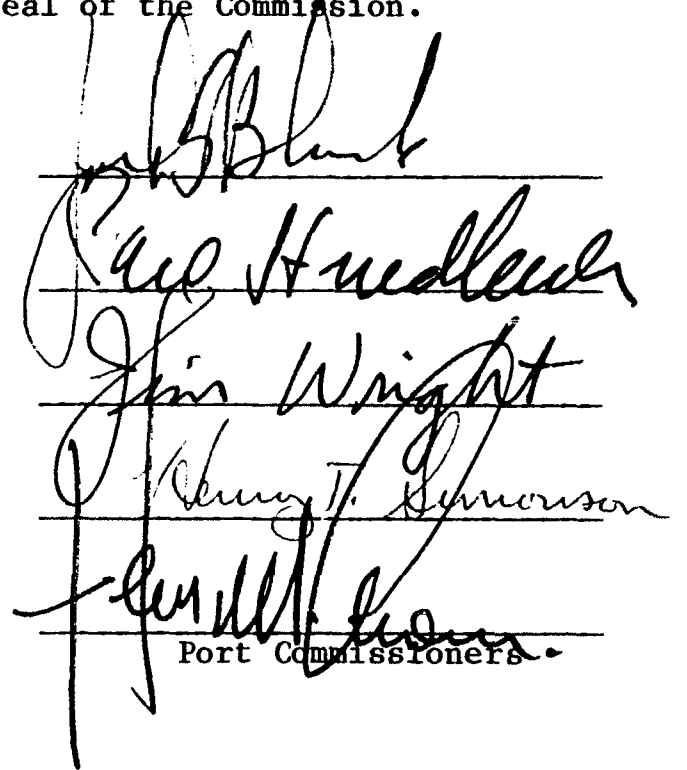 eal of the Commission.
Jack Block
Paul Friedlander
Jim Wright
Henry T. Simonson
Port Commissioners